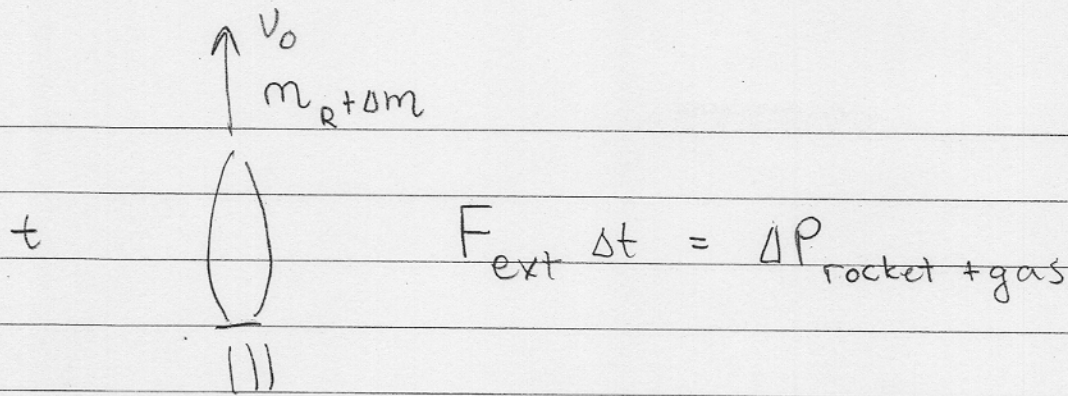 v₀
m_R + Δm
t
F_ext Δt = ΔP_rocket + gas